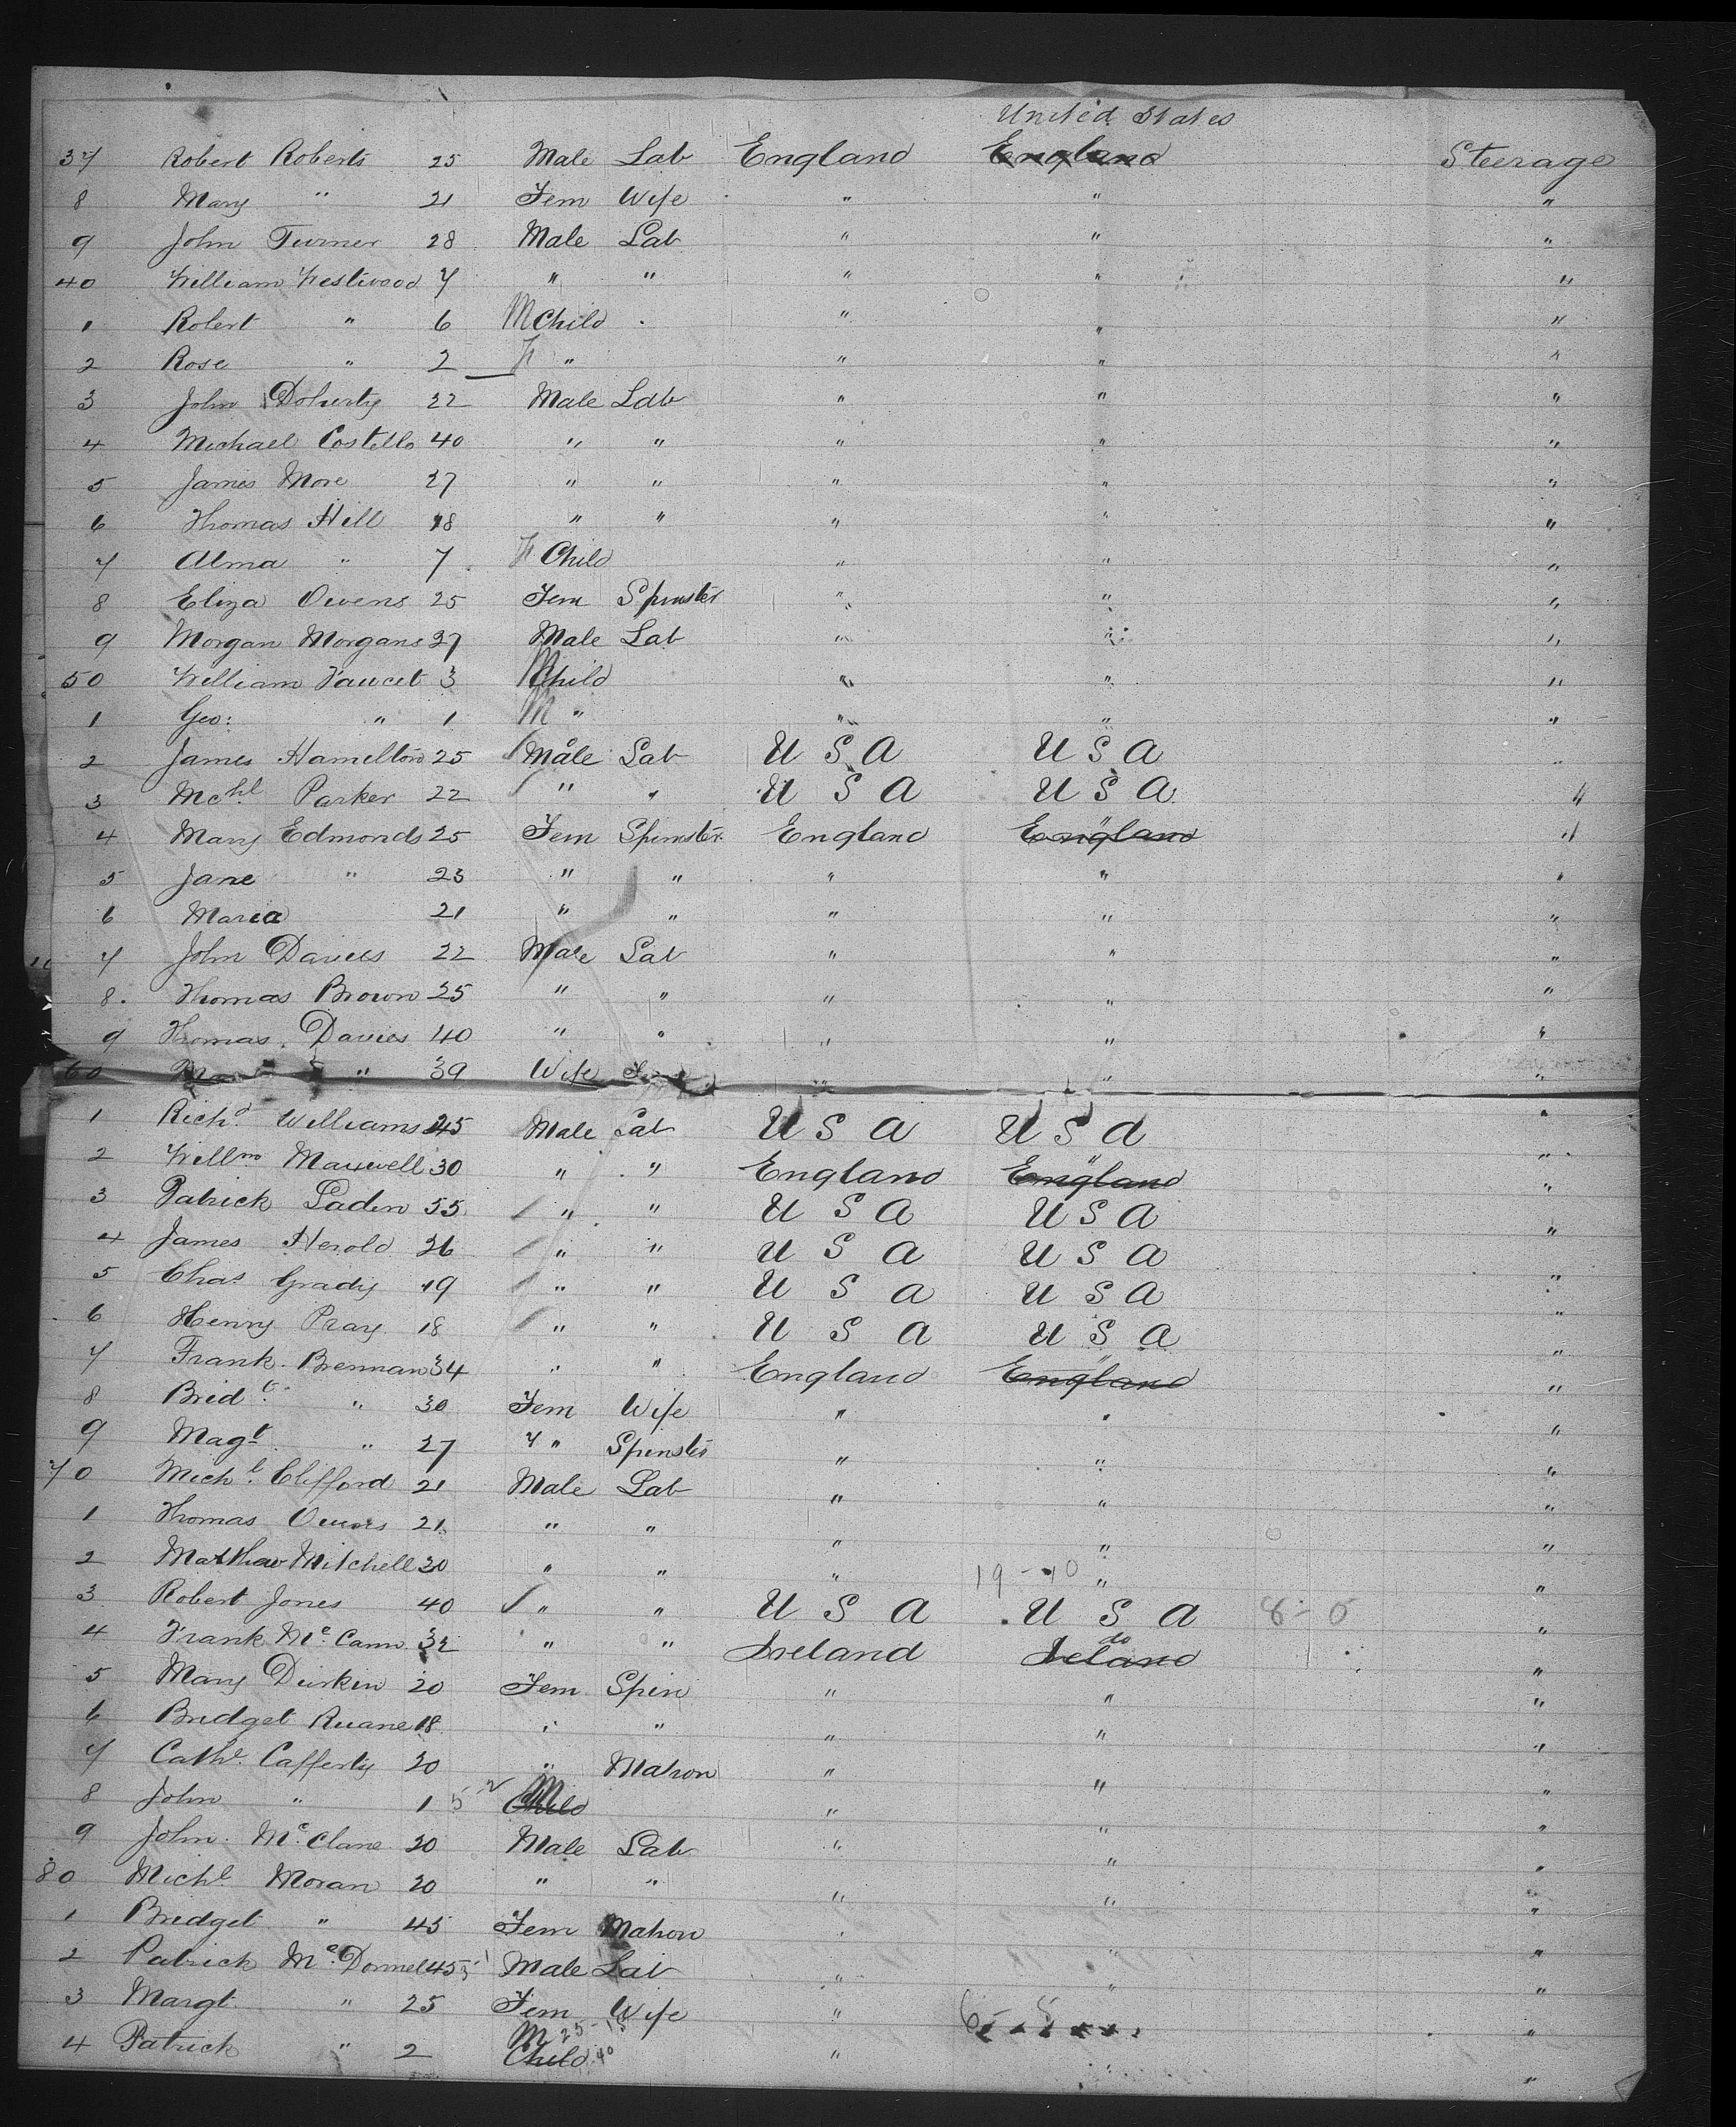 United States
37 Robert Roberts 25 Male Lab England England Steerage
8 Mary " 21 Fem Wife " " "
9 John Turner 28 Male Lab " " "
40 William Westwood 7 " " " " "
1 Robert " 6 M Child " " "
2 Rose " 2 F " " " "
3 John Doherty 22 Male Lab " " "
4 Michael Costello 40 " " " " "
5 James More 27 " " " " "
6 Thomas Hill 18 " " " " "
7 Alma " 7 F Child " " "
8 Eliza Owens 25 Fem Spinster " " "
9 Morgan Morgans 37 Male Lab " " "
50 William Faucet 3 M Child " " "
1 Geo: " 1 M " " " "
2 James Hamilton 25 Male Lab U S A U S A "
3 Mchl Parker 22 " " U S A U S A "
4 Mary Edmonds 25 Fem Spinster England England "
5 Jane " 23 " " " " "
6 Maria 21 " " " " "
7 John Davies 22 Male Lab " " "
8 Thomas Brown 25 " " " " "
9 Thomas Davies 40 " " " " "
60 " 39 Wife " " "
1 Richd Williams 45 Male Lab U S A U S A "
2 Willm Maxwell 30 " " England England "
3 Patrick Laden 55 " " U S A U S A "
4 James Herold 26 " " U S A U S A "
5 Chas Grady 19 " " U S A U S A "
6 Henry Pray 18 " " U S A U S A "
7 Frank Brennan 34 " " England England "
8 Bridt " 30 Fem Wife " " "
9 Magt " 27 " Spinster " " "
70 Michl Clifford 21 Male Lab " " "
1 Thomas Owens 21 " " " " "
2 Mathew Mitchell 30 " " " " "
19 - 40
3 Robert Jones 40 " " U S A U S A 8 - 5 "
4 Frank Mc Cann 32 " " Ireland do Ireland "
5 Mary Durkin 20 Fem Spin " " "
6 Bridget Ruane 18 " " " " "
7 Cathe Cafferty 20 " Matron " " "
8 John " 1 M Child " " "
9 John Mc Clane 20 Male Lab " " "
80 Michl Moran 20 " " " " "
1 Bridget " 45 Fem Matron " " "
2 Patrick Mc Donnel 45 Male Lab " " "
3 Margt " 25 Fem Wife " "
6 - 5
25 - 15
4 Patrick " 2 M Child 40 " " "